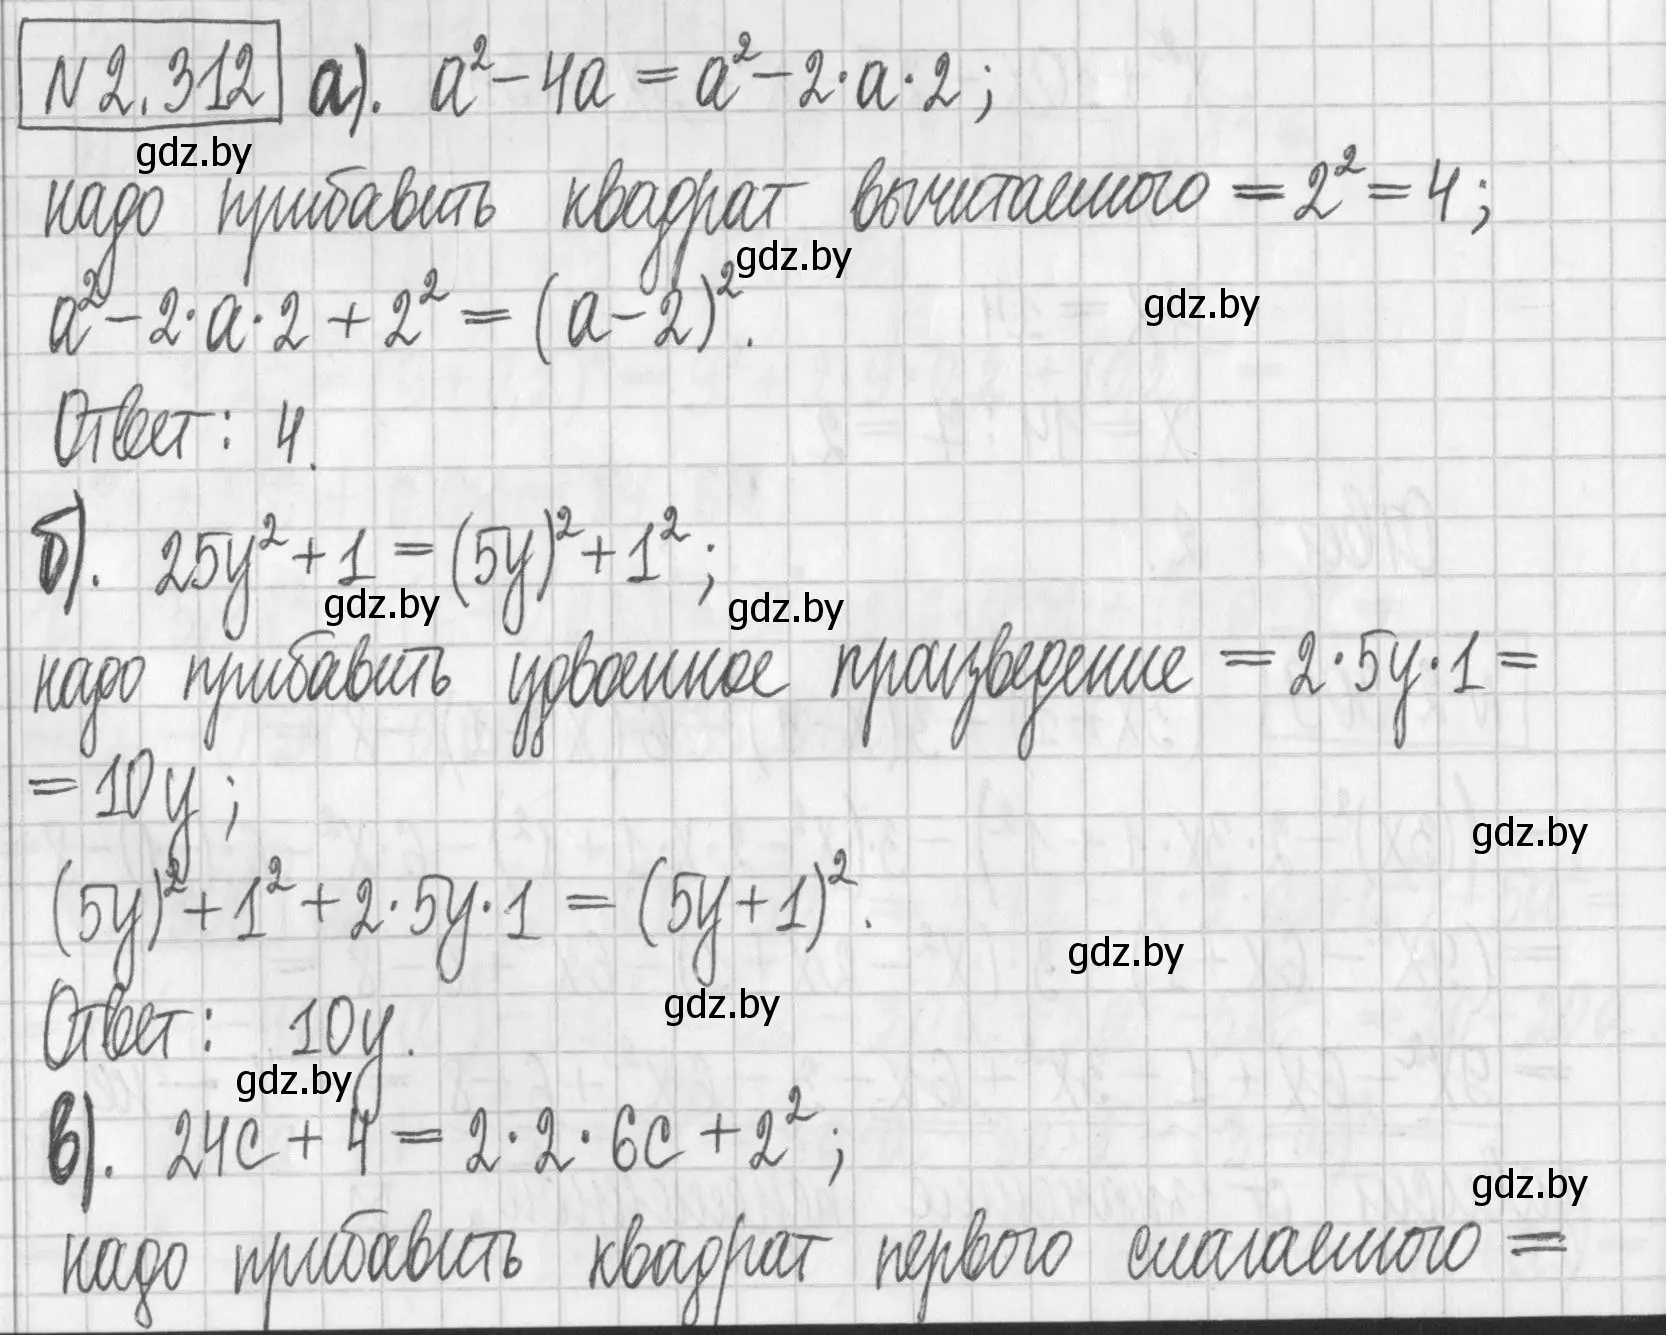 N 2.312 а). a² - 4a = a² - 2·a·2;
gdz.by
надо прибавить квадрат вычитаемого = 2² = 4;
gdz.by
gdz.by
a² - 2·a·2 + 2² = (a - 2)².
Ответ: 4.
б). 25y² + 1 = (5y)² + 1²;
gdz.by gdz.by
надо прибавить удвоенное произведение = 2·5y·1 =
= 10y;
gdz.by
(5y)² + 1² + 2·5y·1 = (5y + 1)².
gdz.by
gdz.by
Ответ: 10y.
gdz.by
в). 24c + 4 = 2·2·6c + 2²;
gdz.by
надо прибавить квадрат первого слагаемого =